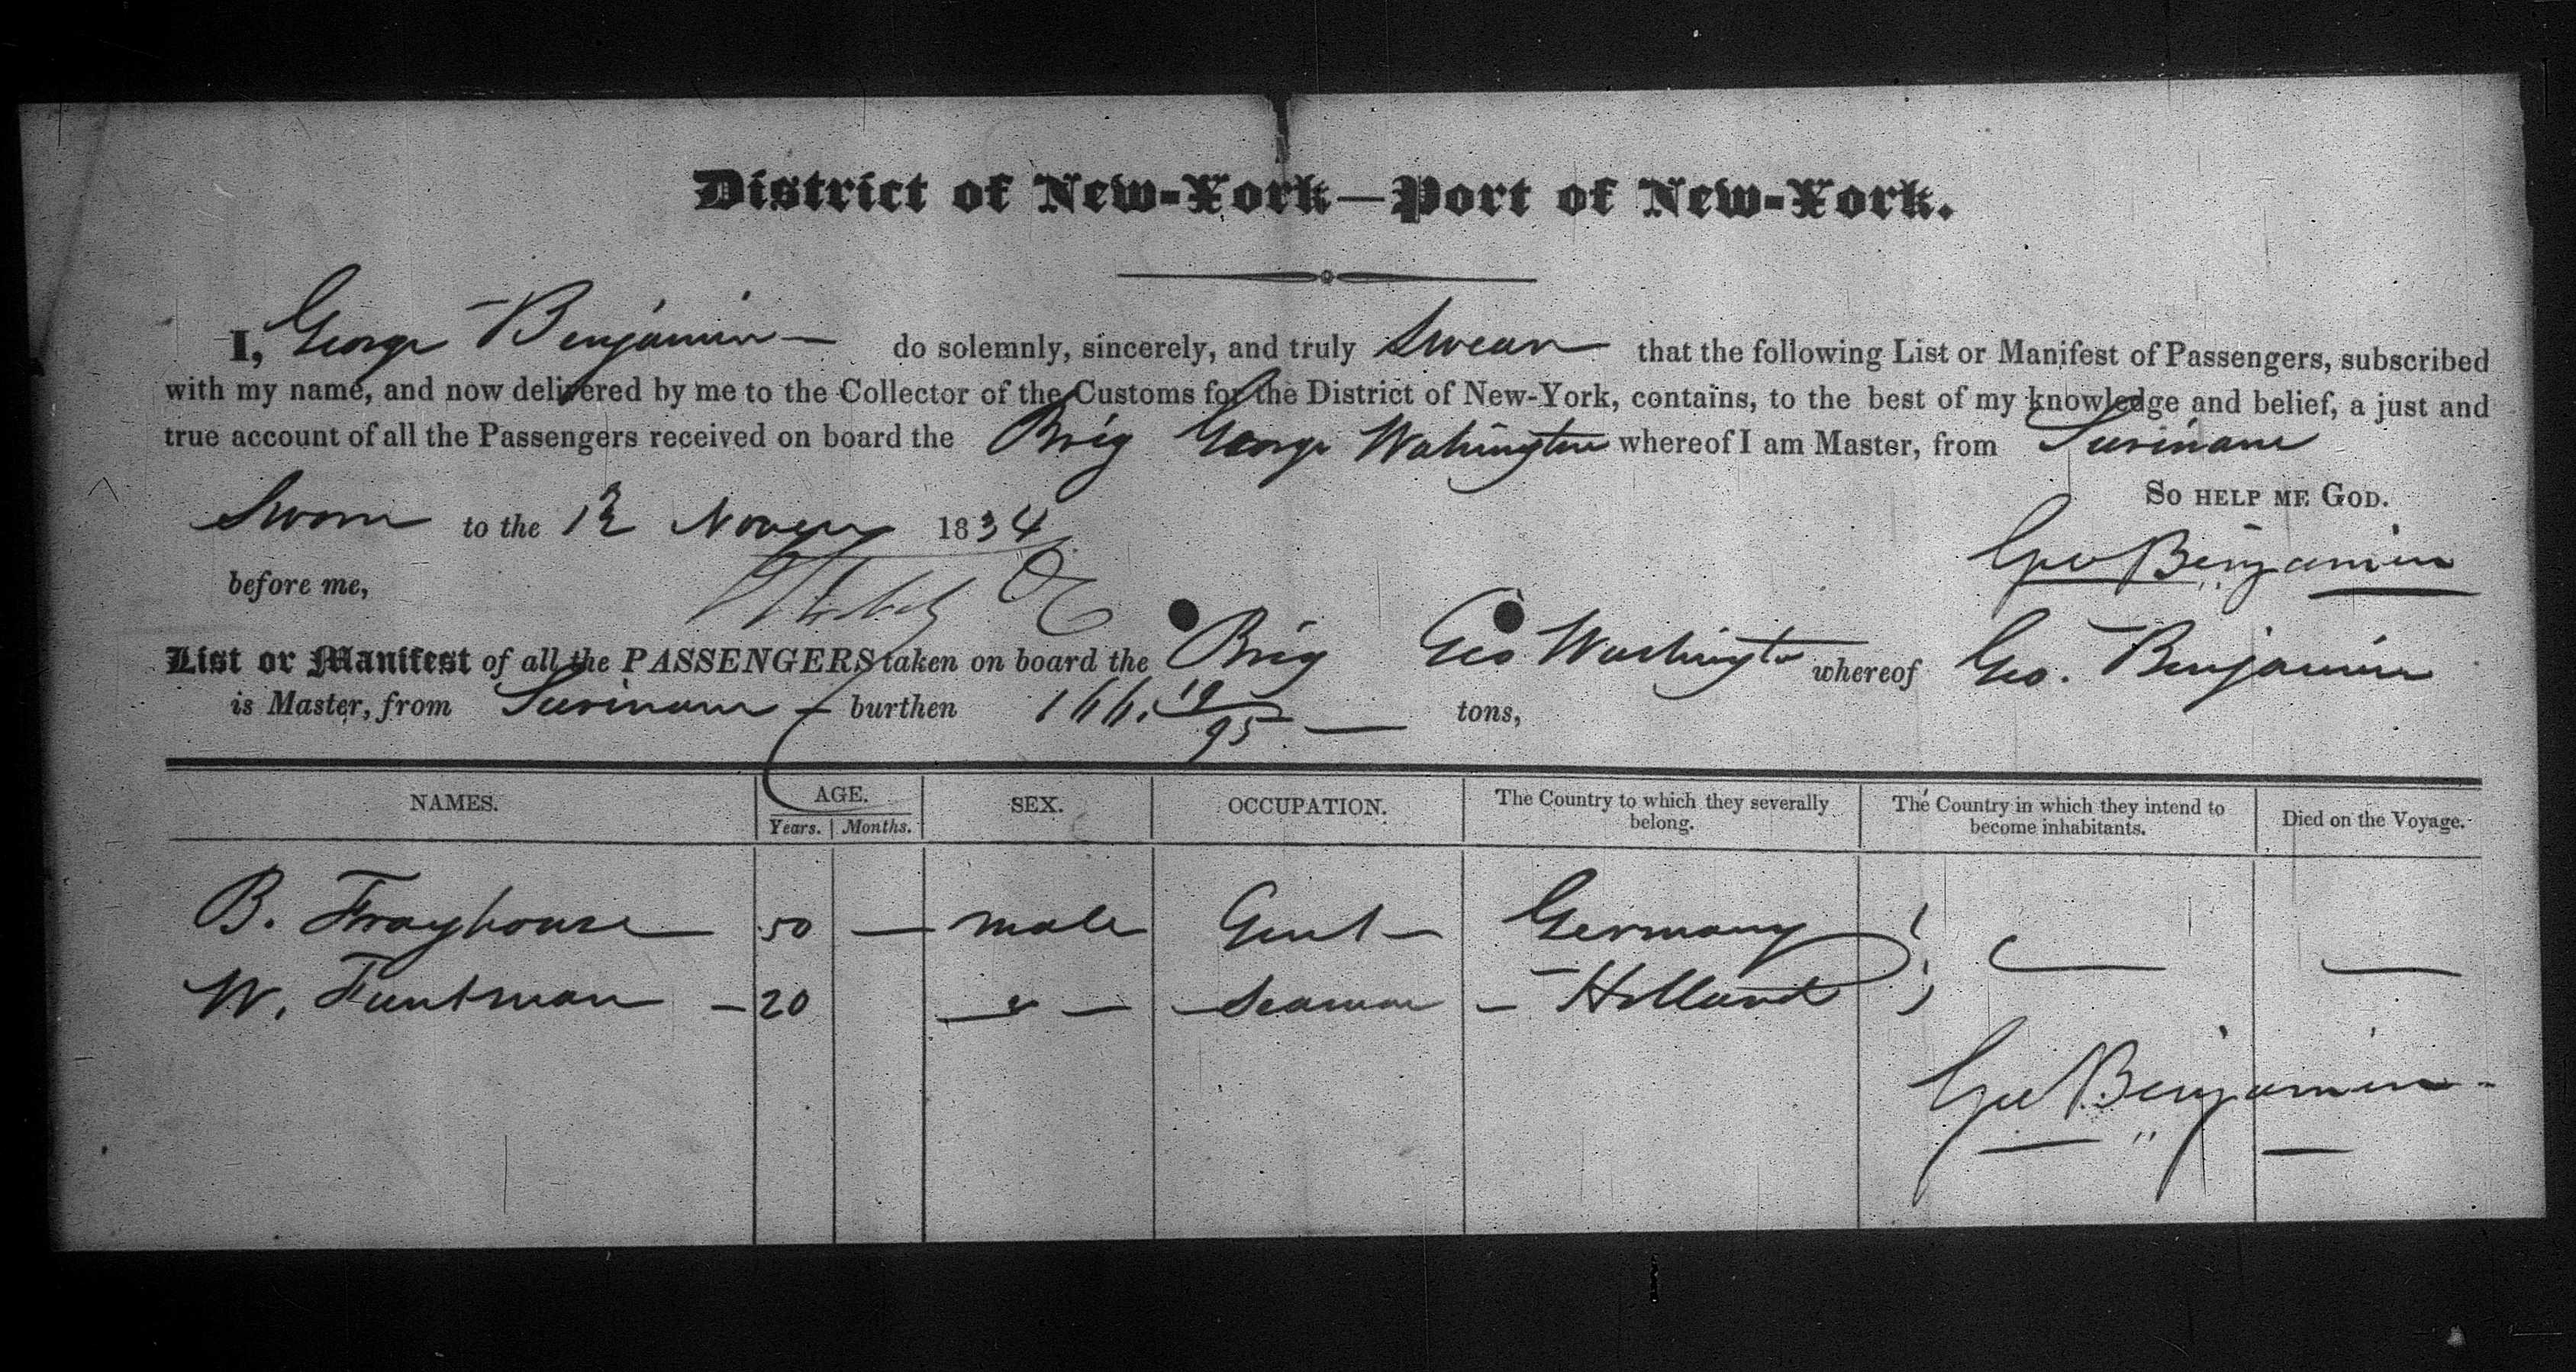 District of New-York—Port of New-York.
I, George Benjamin — do solemnly, sincerely, and truly Swear that the following List or Manifest of Passengers, subscribed
with my name, and now delivered by me to the Collector of the Customs for the District of New-York, contains, to the best of my knowledge and belief, a just and
true account of all the Passengers received on board the Brig George Wahington whereof I am Master, from Surinam
So help me God.
Sworn to the 1834
Geo Benjamin
before me,
List or Manifest of all the PASSENGERS taken on board the Brig Geo Washington whereof Geo. Benjamin
is Master, from Surinam — burthen 166. 19/95 — tons,
NAMES. AGE. Years. Months. SEX. OCCUPATION. The Country to which they severally belong. The Country in which they intend to become inhabitants. Died on the Voyage.
B. Frayhouse — 50 — male Gent — Germany —
W. Funtman — 20 — " — Seaman — Holland
Geo Benjamin